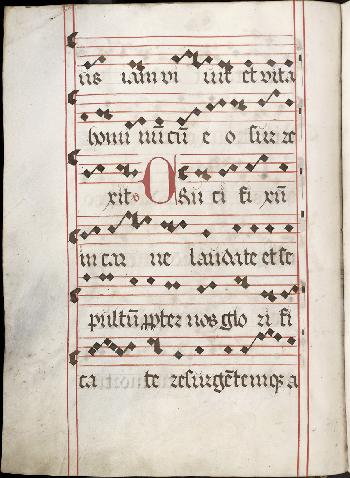 us iam vi vit et vita
homi nū cū e o sur re
xit Cru ci fi xū
in car ne laudate et se
pultū ꝓpter nos glo ri fi
ca te resurgētemqꝫ a